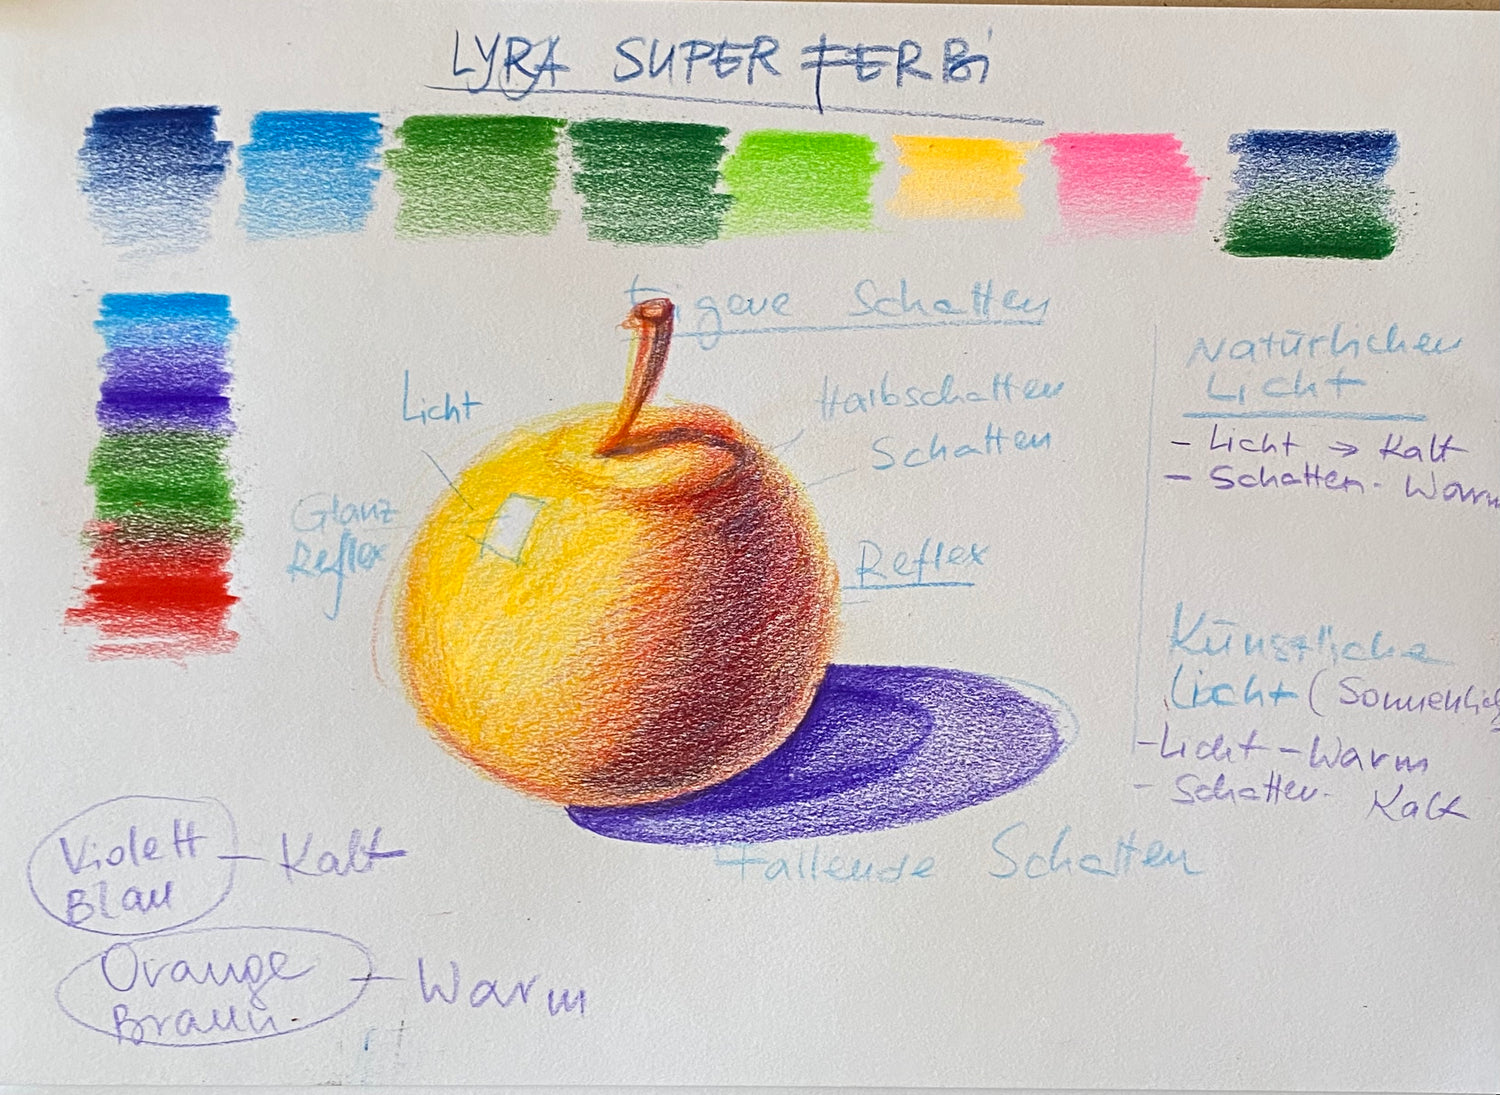 LYRA SUPER FERBi
Eigene Schatten
Licht
Halbschatten
Schatten
Glanz
Reflex
Reflex
Natürlichen
Licht
- Licht → Kalt
- Schatten - Warm
Künstliche
Licht (Sonnenlich
- Licht - Warm
- Schatten - Kalt
Fallende Schatten
Violett
Blau
- Kalt
Orange
Braun.
- Warm